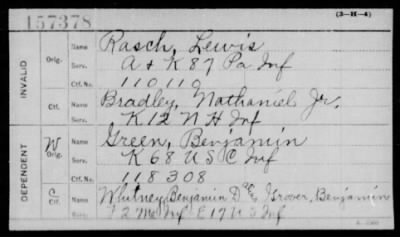 157378
(3-H-4)
INVALID
Orig. Name Rasch, Lewis
Serv. A + K 87 Pa Inf
Ctf. No. 110110
Ctf. Name Bradley, Nathaniel Jr.
Serv. K 12 N H Inf
DEPENDENT
W Orig. Name Green, Benjamin
Serv. K 68 U S C Inf
Ctf. No. 118308
C Ctf. Name Whitney, Benjamin D Grover, Benjamin
Serv. 2 Me Inf E 17 U S Inf